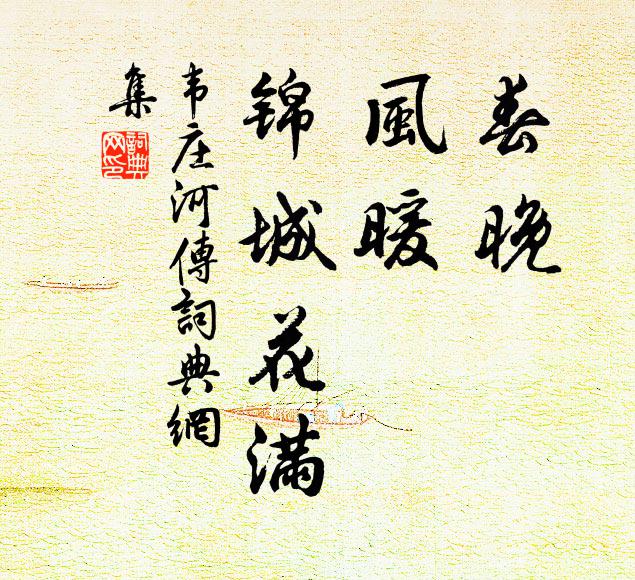 春晚
風暖
锦城花满
韦庄河傳詞典網
集
詞典
网印